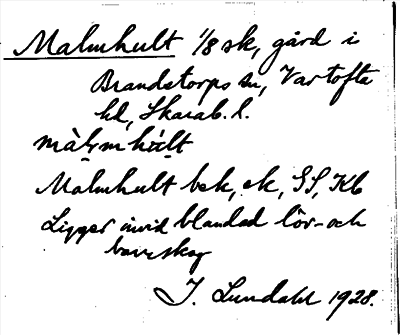 Malmhult 1/8 sk, gård i
Brandstorps sn, Vartofta
hd, Skarab. l.
màlmhùlt
Malmhult bsk, ek, SS, Kb
Ligger invid blandad löv- och
barrskog
J. Lundahl 1928.